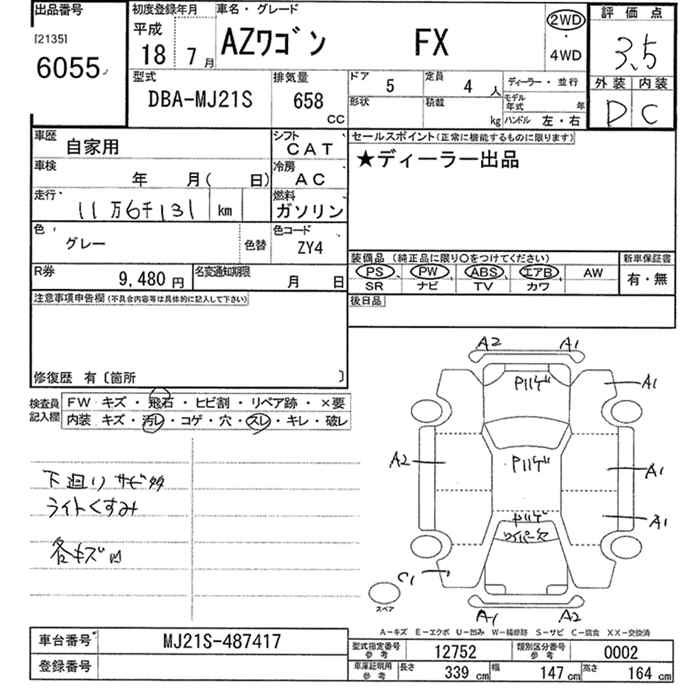 出品番号
[2135]
6055
初度登録年月
平成
18 7月
車名・グレード
AZワゴン FX
2WD
・
4WD
評価点
3.5
外装 内装
D C
型式
DBA-MJ21S
排気量
658
CC
ドア
5
定員
4 人
形状
積載
kg
ディーラー・並行
モデル年式 年
ハンドル 左・右
車歴
自家用
シフト
CAT
車検
年 月( 日)
冷房
AC
走行
11万6千131 km
燃料
ガソリン
色
グレー
色替
色コード
ZY4
R券
9,480 円
名変通知期限
月 日
セールスポイント(正常に機能するものに限ります)
★ディーラー出品
装備品 (純正品に限り○をつけてください)
PS PW ABS エアB AW
SR ナビ TV カワ
新車保証書
有・無
後日品
注意事項申告欄 (不具合内容等は具体的に記入して下さい)
修復歴 有〔箇所 〕
検査員記入欄
FW キズ・飛石・ヒビ割・リペア跡・×要
内装 キズ・汚レ・コゲ・穴・スレ・キレ・破レ
下廻りサビ多
ライトくすみ
各キズ凹
A2 A1
Pハゲ
A1
A2
Pハゲ
A1
A1
Pハゲ
ワイパー欠
C1
スペア
A1 A2
A-キズ E-エクボ U-凹み W-補修跡 S-サビ C-腐食 XX-交換済
車台番号
MJ21S-487417
登録番号
型式指定番号
参考
12752
類別区分番号
参考
0002
車庫証明用
参考
長さ
339 cm
幅
147 cm
高さ
164 cm